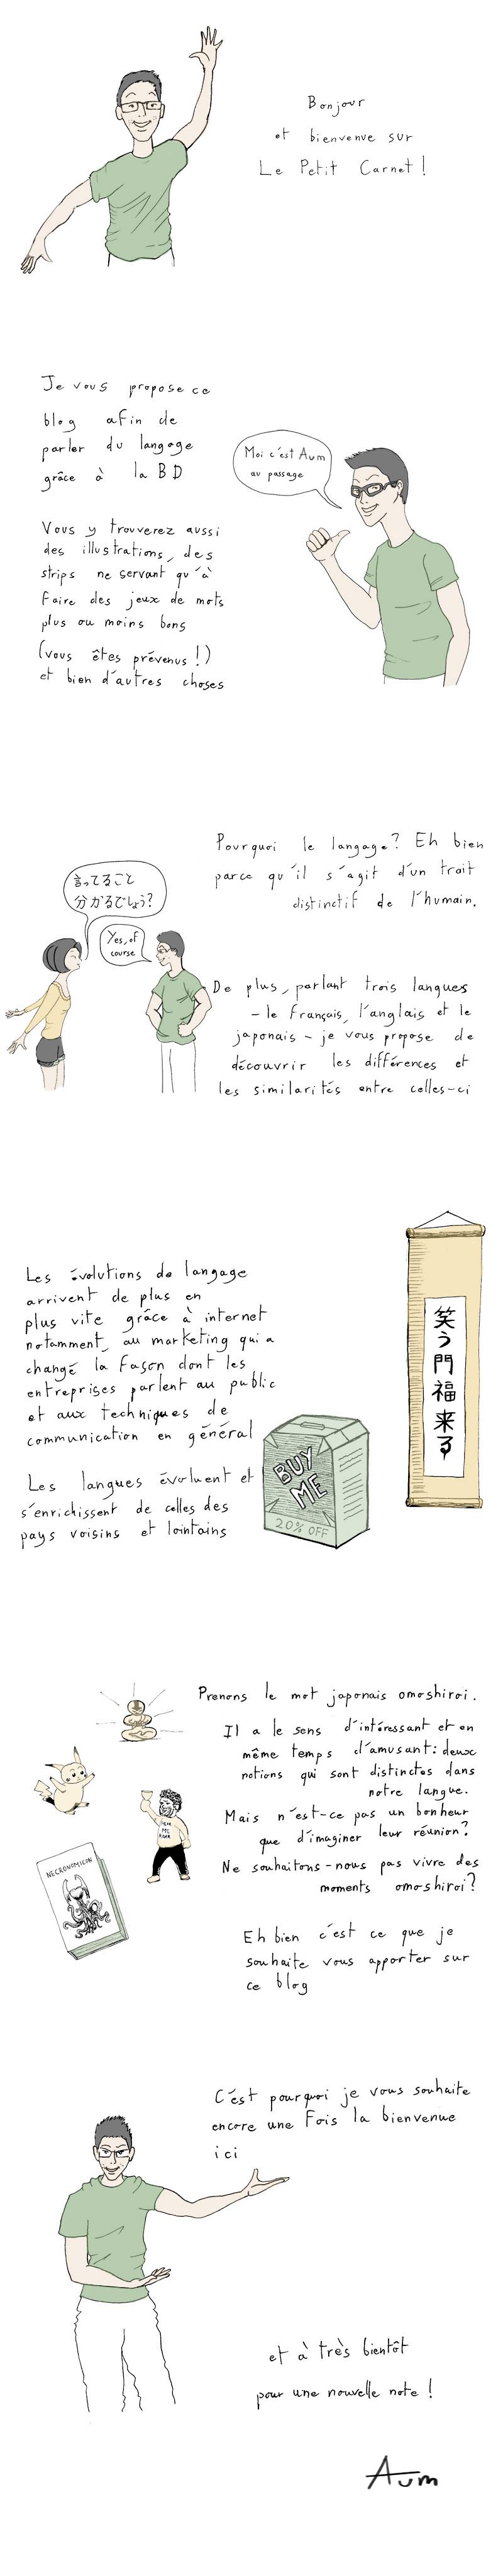 Bonjour
et bienvenue sur
Le Petit Carnet !
Je vous propose ce
blog afin de
parler du langage
grâce à la BD
Moi c'est Aum
au passage
Vous y trouverez aussi
des illustrations, des
strips ne servant qu'à
faire des jeux de mots
plus ou moins bons
(vous êtes prévenus !)
et bien d'autres choses
Pourquoi le langage ? Eh bien
parce qu'il s'agit d'un trait
distinctif de l'humain.
言ってること
分かるでしょう?
Yes, of
course
De plus, parlant trois langues
- le français, l'anglais et le
japonais - je vous propose de
découvrir les différences et
les similarités entre celles-ci
Les évolutions de langage
arrivent de plus en
plus vite grâce à internet
notamment, au marketing qui a
changé la façon dont les
entreprises parlent au public
et aux techniques de
communication en général
Les langues évoluent et
s'enrichissent de celles des
pays voisins et lointains
BUY
ME
20% OFF
笑う門福来る
Prenons le mot japonais omoshiroi.
Il a le sens d'intéressant et en
même temps d'amusant : deux
notions qui sont distinctes dans
notre langue.
Mais n'est-ce pas un bonheur
que d'imaginer leur réunion ?
Ne souhaitons-nous pas vivre des
moments omoshiroi ?
NECRONOMICON
Eh bien c'est ce que je
souhaite vous apporter sur
ce blog
C'est pourquoi je vous souhaite
encore une fois la bienvenue
ici
et à très bientôt
pour une nouvelle note !
Aum